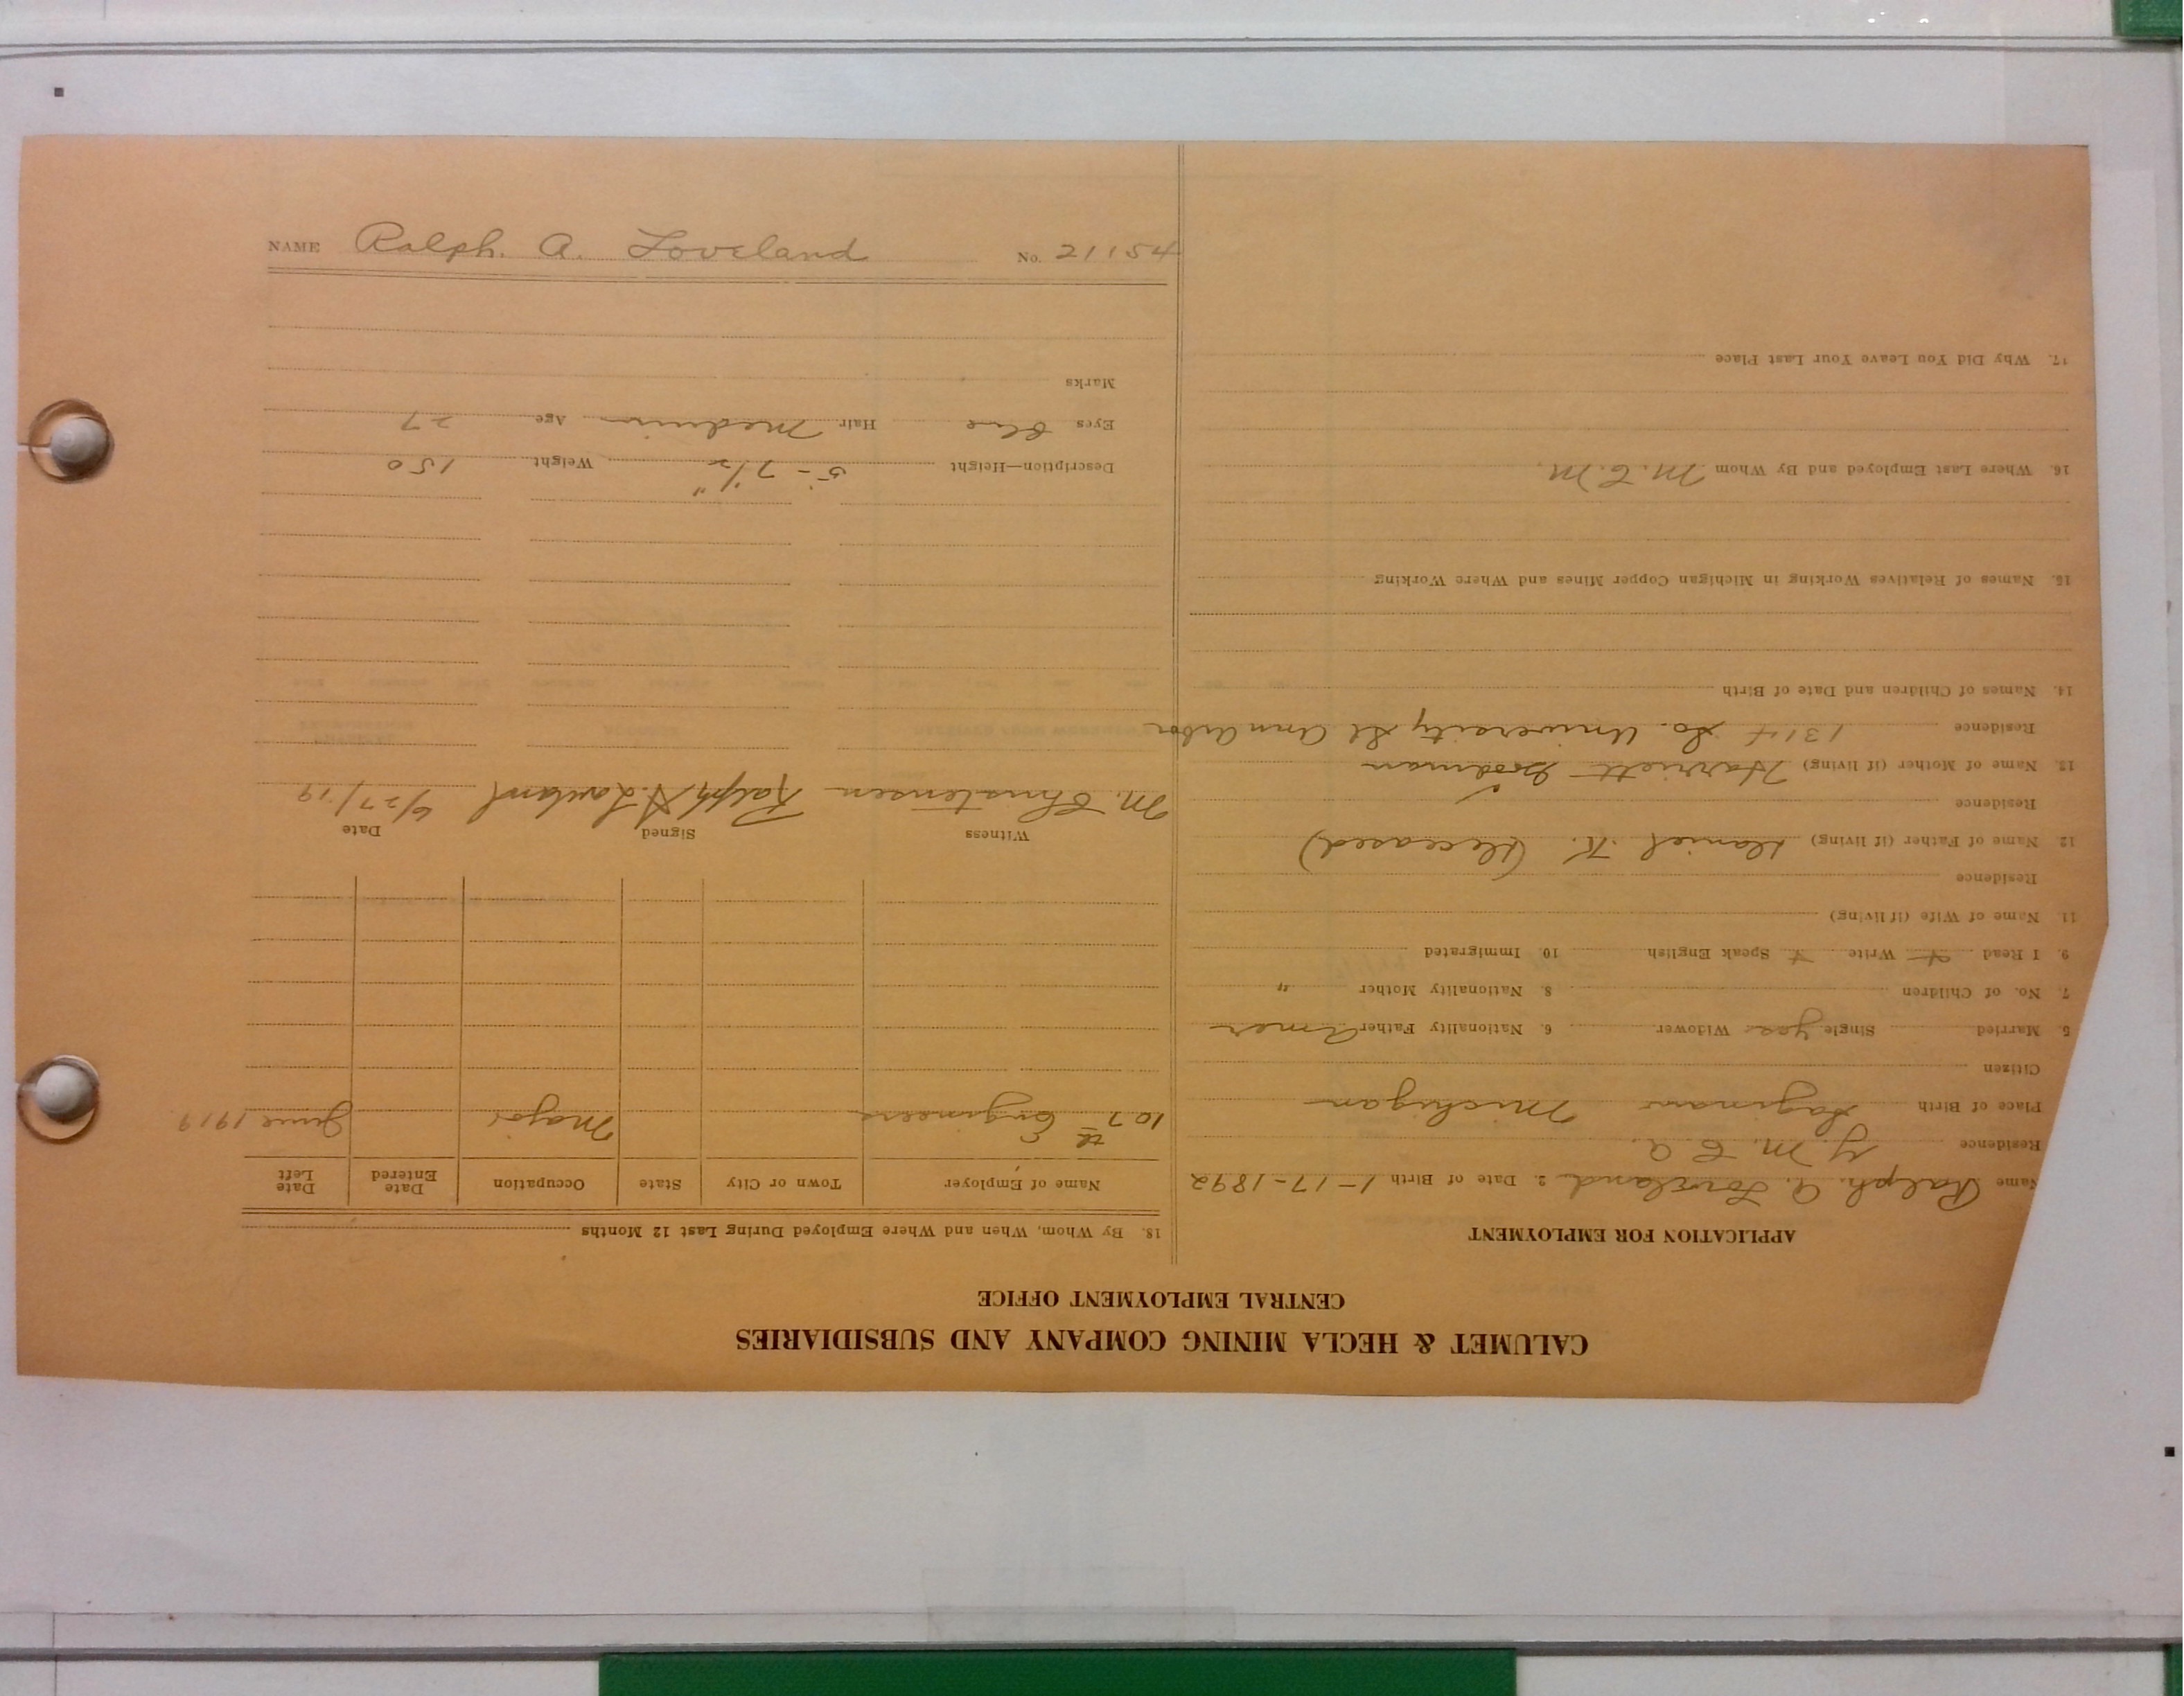 CALUMET & HECLA MINING COMPANY AND SUBSIDIARIES
CENTRAL EMPLOYMENT OFFICE
APPLICATION FOR EMPLOYMENT
Name Ralph. A. Loveland 2. Date of Birth 1-17-1892
Residence Y. M. C. A.
Place of Birth Saginaw Michigan
Citizen
5. Married Single yes Widower 6. Nationality Father Amer
7. No. of Children 8. Nationality Mother "
9. I Read Write Speak English 10. Immigrated
11. Name of Wife (if living)
Residence
12. Name of Father (if living) Daniel K. (Deceased)
Residence
13. Name of Mother (if living) Harriett Goodman
Residence 1314 So. University St Ann Arbor
14. Names of Children and Date of Birth
15. Names of Relatives Working in Michigan Copper Mines and Where Working
16. Where Last Employed and By Whom M. C. M.
17. Why Did You Leave Your Last Place
18. By Whom, When and Where Employed During Last 12 Months
Name of Employer Town or City State Occupation Date Entered Date Left
107th Engineers Major June 1919
Witness Signed Date
M. Christensen Ralph A. Loveland 6/27/19
Description—Height 5'-7 1/2" Weight 150
Eyes Blue Hair Medium Age 27
Marks
NAME Ralph. A. Loveland No. 21154